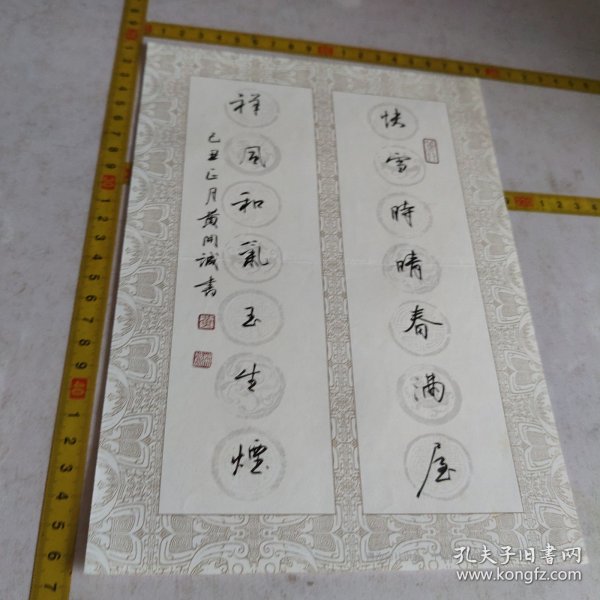 快雪時晴春满屋
祥風和氣玉生煙
己丑正月黄開誠書
孔夫子旧书网
www.kongfz.com